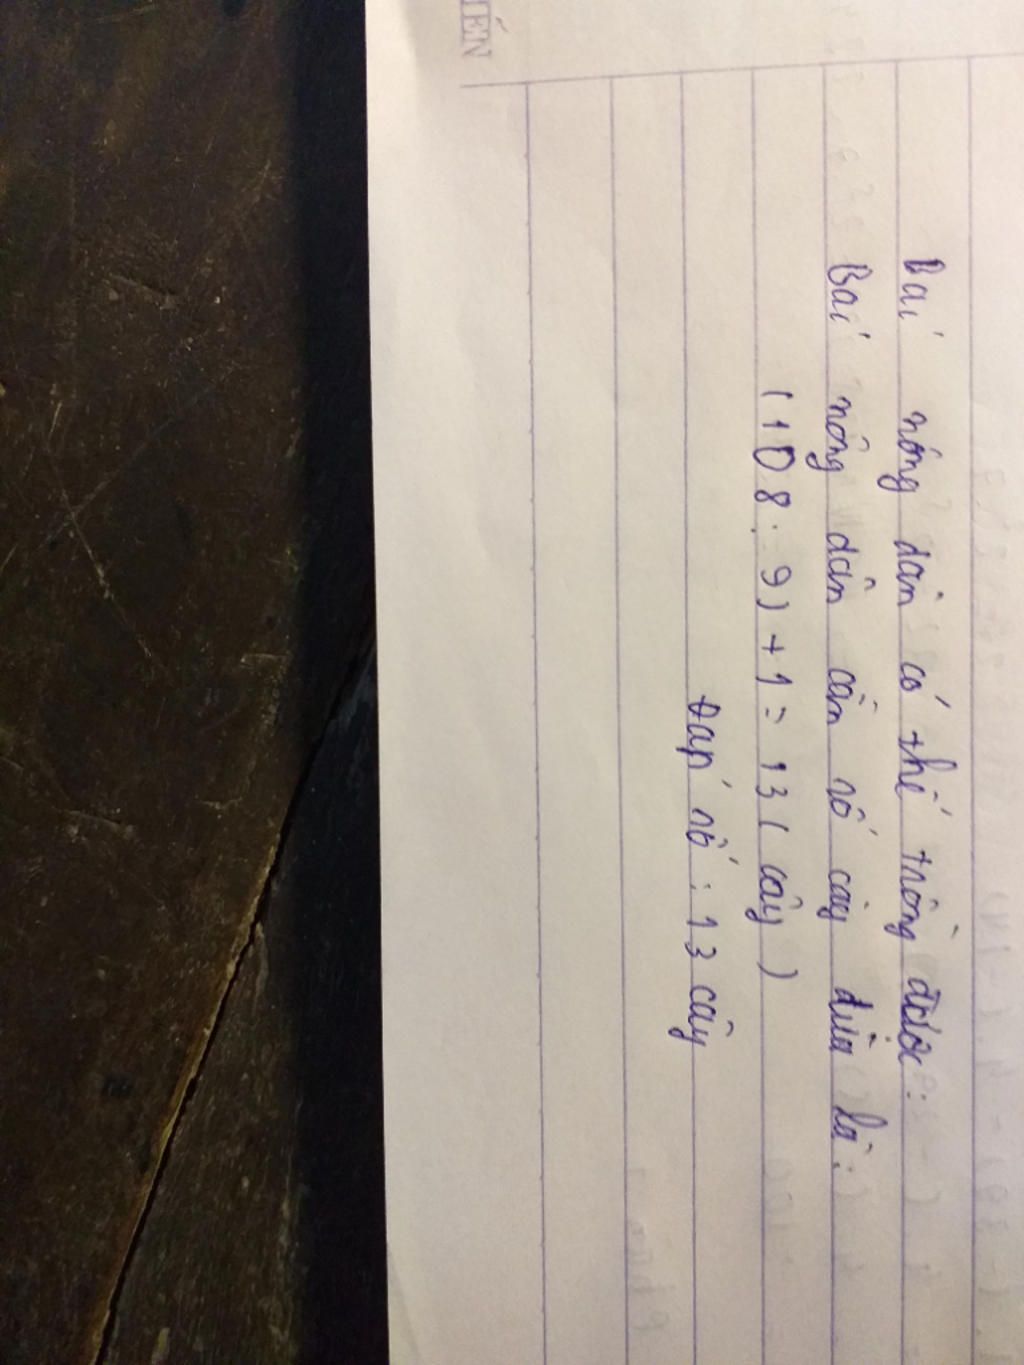 IẾN
Bác nông dân có thể trồng được:
Bác nông dân cần số cây dừa là:
(108: 9) + 1 = 13 (cây)
Đáp số: 13 cây